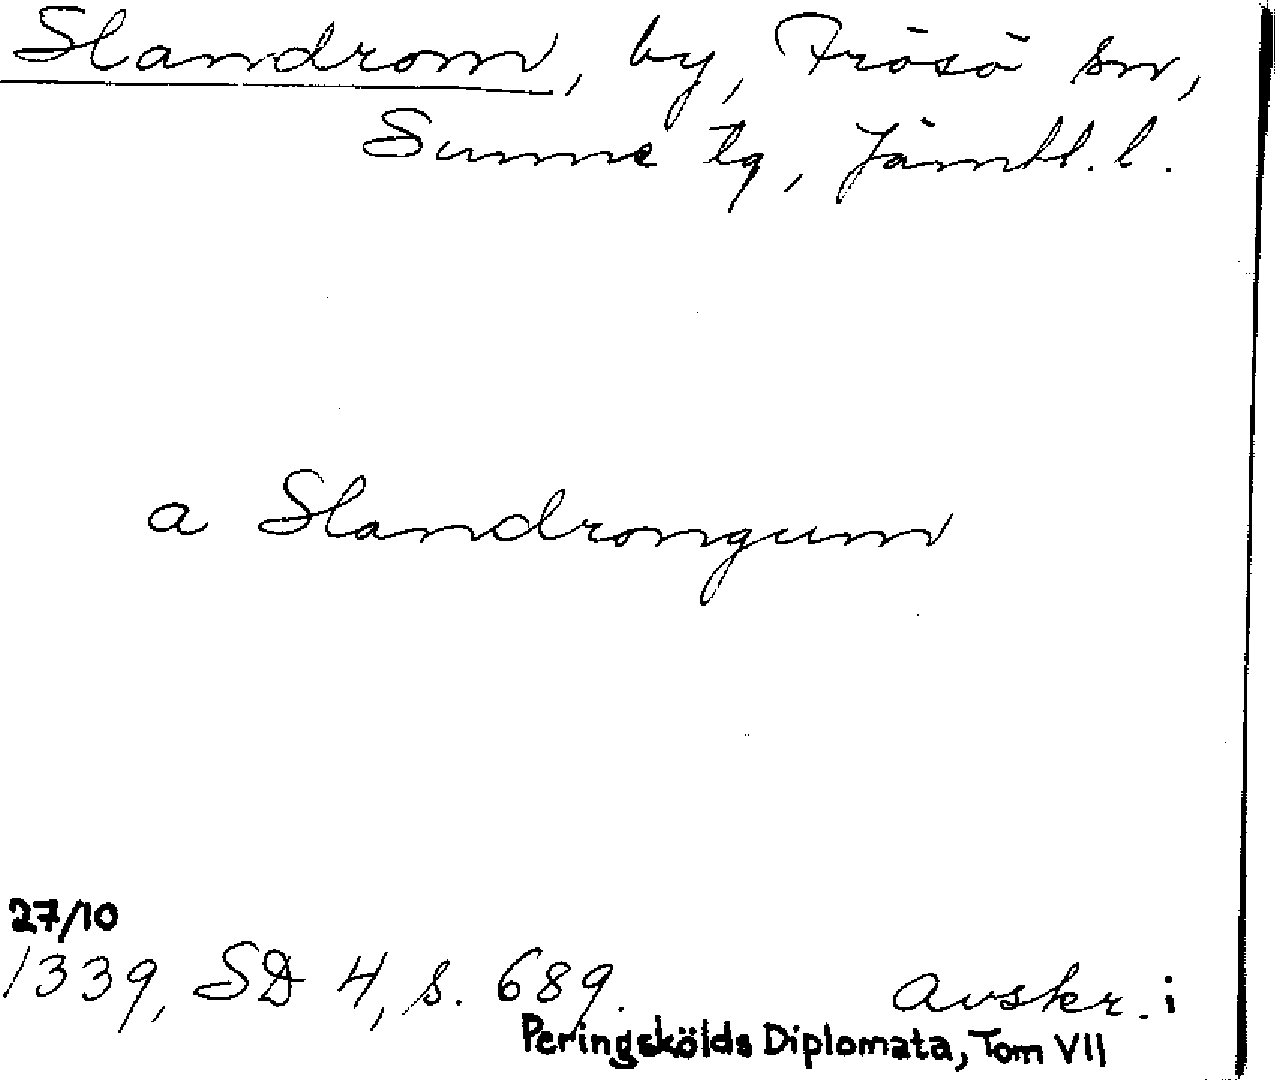 Slandrom, by, Frösö sn,
Sunne tg, Jämtl. l.
a Slandrongum
27/10
1339, SD 4, s. 689. Avskr. i
Peringskölds Diplomata, Tom VII